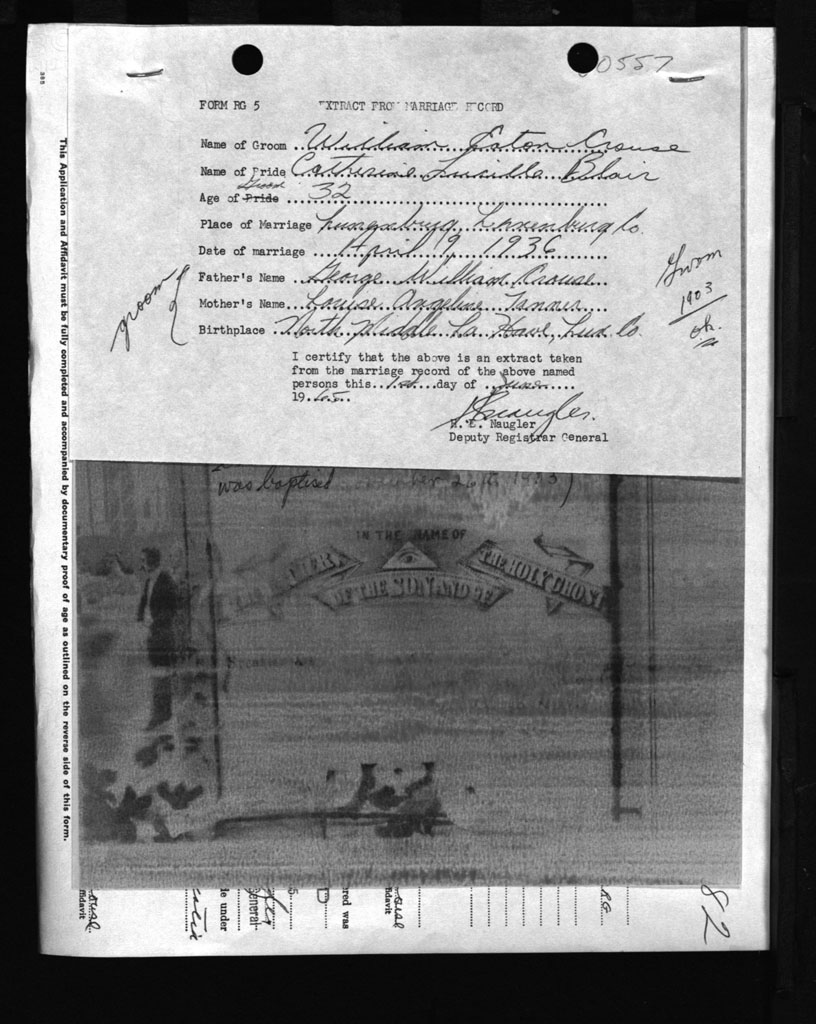 00557
FORM RG 5 EXTRACT FROM MARRIAGE RECORD
Name of Groom William Eaton Crouse
Name of Bride Catherine Lucilla Blair
Groom
Age of Bride 32
Place of Marriage Lunenburg, Lunenburg Co.
Date of marriage April 9, 1936
Father's Name George William Crouse
Mother's Name Louise Angeline Tanner
Birthplace North Middle La Have, Lun. Co.
groom
Groom
1903
ok.
I certify that the above is an extract taken
from the marriage record of the above named
persons this 1st day of June
1965
R. E. Naugler
Deputy Registrar General
This Application and Affidavit must be fully completed and accompanied by documentary proof of age as outlined on the reverse side of this form.
was baptised 1903)
IN THE NAME OF
OF THE SON AND OF
THE HOLY GHOST
ffidavit
le under
General
5
D
ered was
ffidavit
82